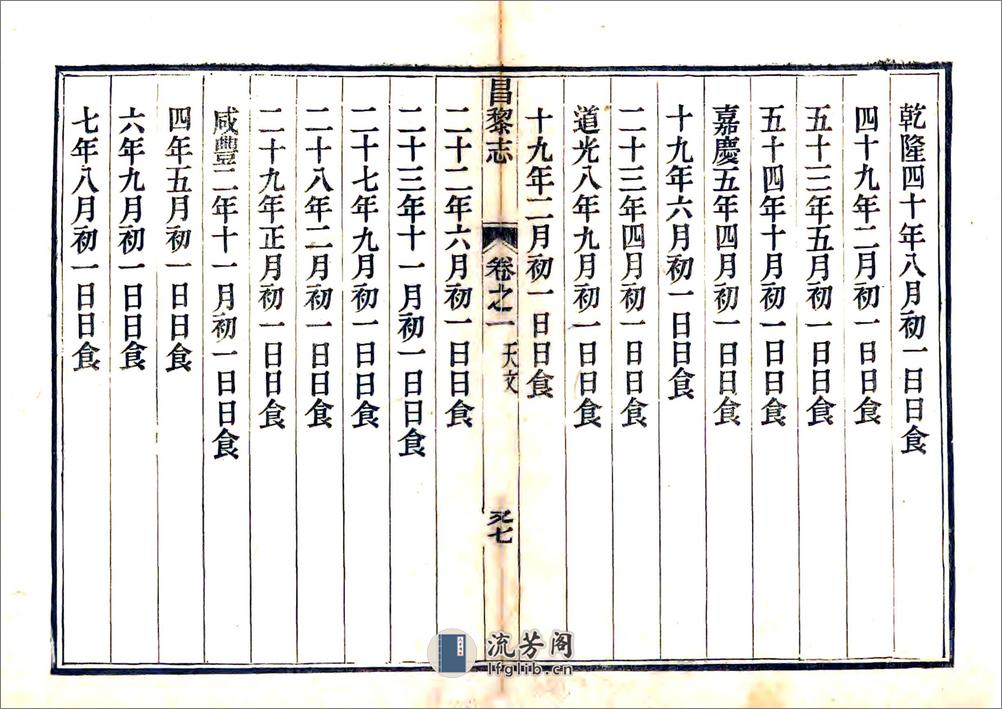 乾隆四十年八月初一日日食
四十九年二月初一日日食
五十三年五月初一日日食
五十四年十月初一日日食
嘉慶五年四月初一日日食
十九年六月初一日日食
二十三年四月初一日日食
道光八年九月初一日日食
十九年二月初一日日食
昌黎志
卷之一
天文
七
二十二年六月初一日日食
二十三年十一月初一日日食
二十七年九月初一日日食
二十八年二月初一日日食
二十九年正月初一日日食
咸豐二年十一月初一日日食
四年五月初一日日食
六年九月初一日日食
七年八月初一日日食
流芳阁
lfglib.cn